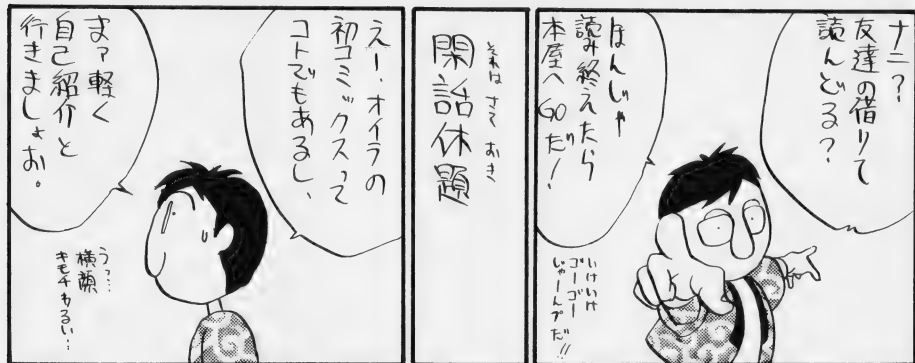 ナニ?
友達の借りて
読んどる?
ほんじゃ
読み終えたら
本屋へGOだ!
いけいけ
ゴーゴー
じゃーんプだ!!
それは さて おき
閑話休題
えー、オイラの
初コミックスって
コトでもあるし、
まァ軽く
自己紹介と
行きましょお。
うっ…
横顔
キモチわるい…